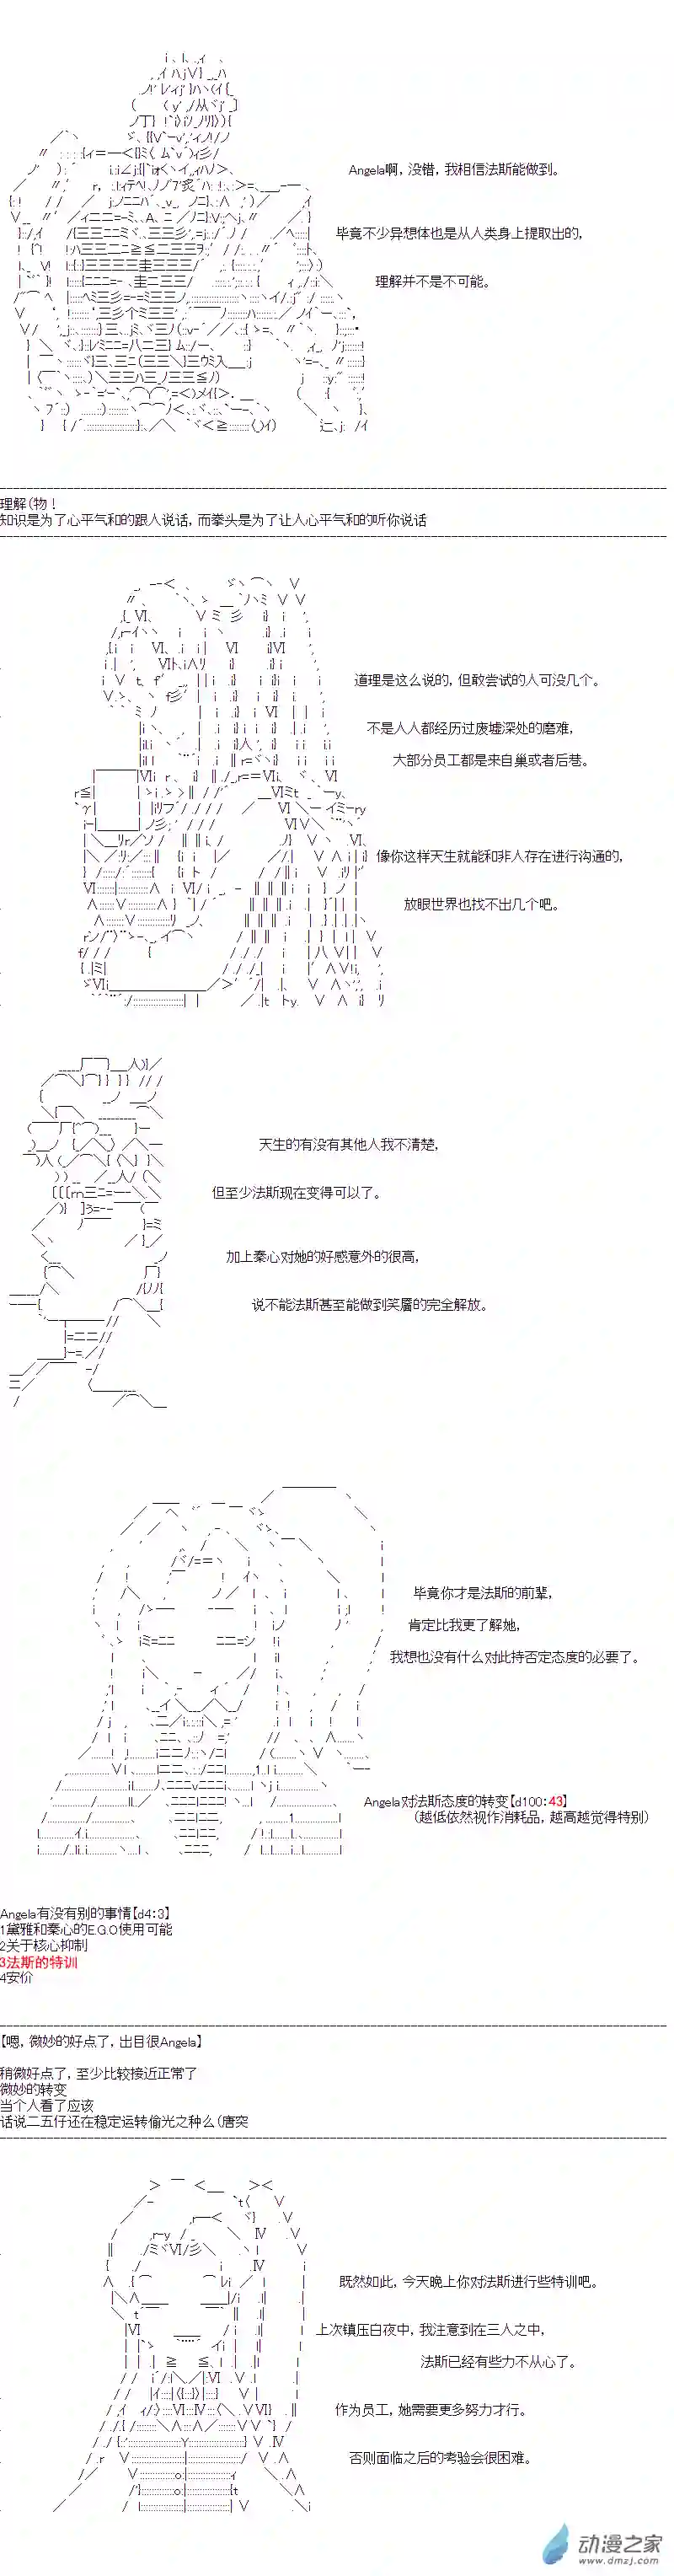 Angela啊，没错，我相信法斯能做到。
毕竟不少异想体也是从人类身上提取出的，
理解并不是不可能。
理解(物！
知识是为了心平气和的跟人说话，而拳头是为了让人心平气和的听你说话
道理是这么说的，但敢尝试的人可没几个。
不是人人都经历过废墟深处的磨难，
大部分员工都是来自巢或者后巷。
像你这样天生就能和非人存在进行沟通的，
放眼世界也找不出几个吧。
天生的有没有其他人我不清楚，
但至少法斯现在变得可以了。
加上秦心对她的好感意外的很高，
说不能法斯甚至能做到笑靥的完全解放。
毕竟你才是法斯的前辈，
肯定比我更了解她，
我想也没有什么对此持否定态度的必要了。
Angela对法斯态度的转变【d100:43】
(越低依然视作消耗品，越高越觉得特别)
Angela有没有别的事情【d4:3】
1黛雅和秦心的E.G.O使用可能
2关于核心抑制
3法斯的特训
4安价
【嗯，微妙的好点了，出目很Angela】
稍微好点了，至少比较接近正常了
微妙的转变
当个人看了应该
话说二五仔还在稳定运转偷光之种么(唐突
既然如此，今天晚上你对法斯进行些特训吧。
上次镇压白夜中，我注意到在三人之中，
法斯已经有些力不从心了。
作为员工，她需要更多努力才行。
否则面临之后的考验会很困难。
动漫之家
www.dmzj.com